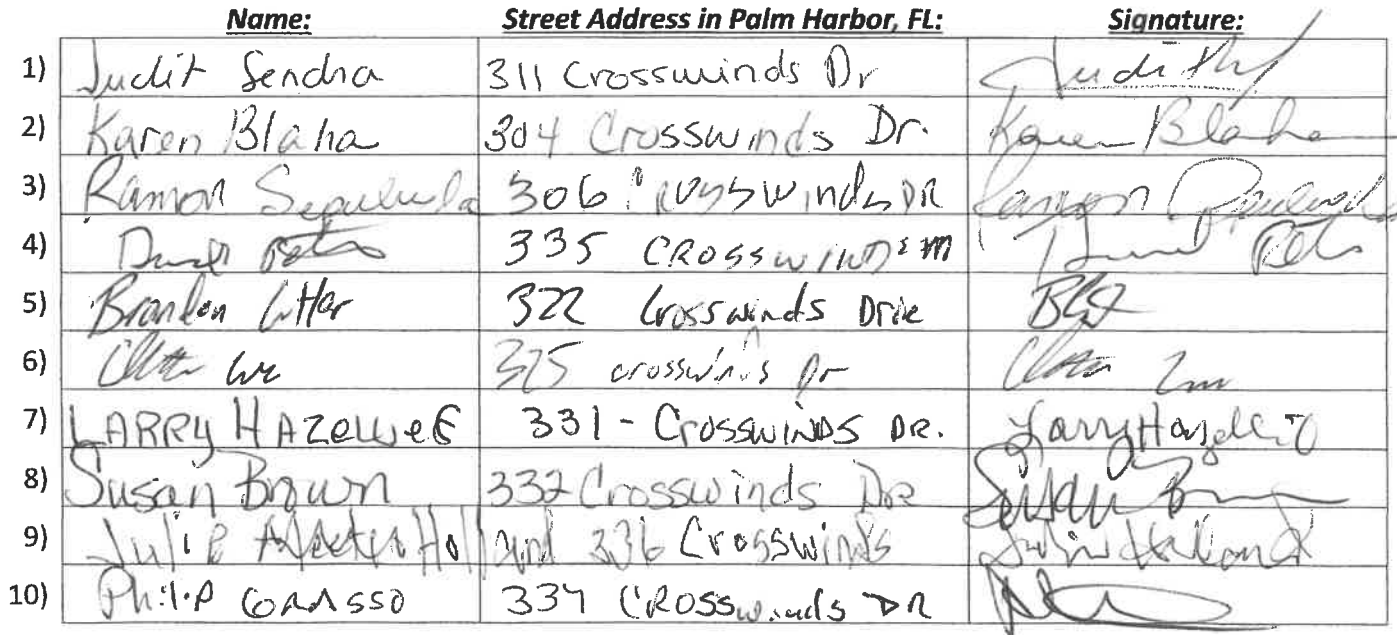 Name: Street Address in Palm Harbor, FL: Signature:
1) Judit Sendra 311 Crosswinds Dr Judith
2) Karen Blaha 304 Crosswinds Dr. Karen Blaha
3) Ramon Sepulveda 306 Crosswinds DR Ramon Sepulveda
4) 335 CROSSWINDS
5) Brandon 322 Crosswinds Drive
6) 325 crosswinds Dr
7) LARRY 331 - CROSSWINDS DR. Larry
8) Susan Brown 332 Crosswinds Dre Susan Brown
9) Julie Holland 336 Crosswinds Julie Holland
10) Philip GRASSO 334 CROSSwinds DR